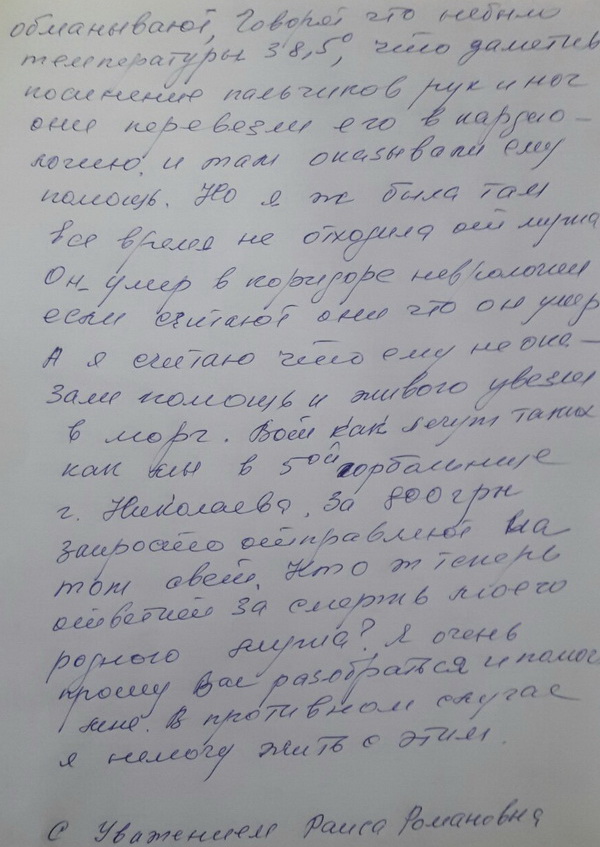 обманывают, Говорят что небыло
температуры 38,5°, что заметив
посинение пальчиков рук и ног
они перевезли его в кардио-
логию. и там оказывали ему
помощь. Но я ж была там
все время не отходила от мужа
Он умер в коридоре неврологии
если считают они что он умер
А я считаю что ему не ока-
зали помощь и живого увезли
в морг. Вот как лечут таких
как мы в 5ой горбольнице
г. Николаева. За 800 грн
запросто отправляют на
тот свет. Кто ж теперь
ответит за смерть моего
родного мужа? Я очень
прошу Вас разобраться и помоч
мне. В противном случае
я немогу жить с этим.
С Уважением Раиса Романовна